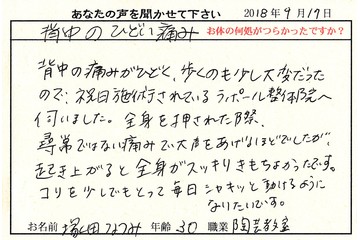 あなたの声を聞かせて下さい 2018年9月17日
お体の何処がつらかったですか?
背中のひどい痛み
背中の痛みがひどく、歩くのも少し大変だった
ので、祝日施術されているラポール整体院へ
伺いました。全身を押された際、
尋常ではない痛みで大声をあげるほどでしたが、
起き上がると全身がスッキリきもちよかったです。
コリを少しでもとって毎日シャキッと動けるように
なりたいです。
お名前 塚田なつみ 年齢 30 職業 陶芸教室